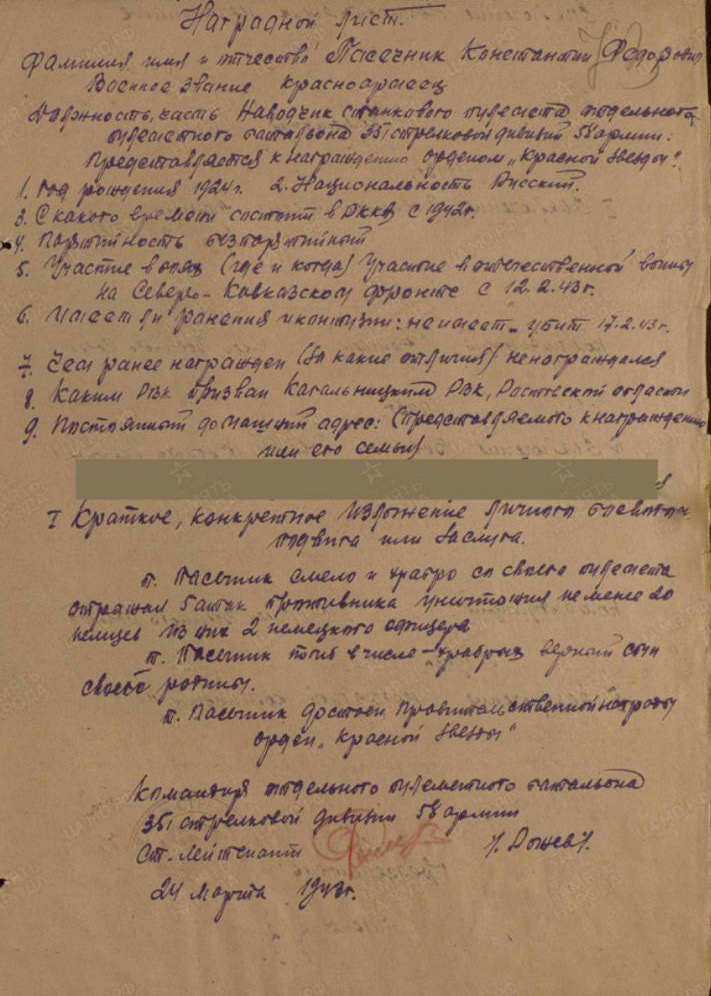 Наградной лист.
Фамилия имя и отчество Пасечник Константин Федорович
Военное звание красноармеец
Должность, часть Наводчик станкового пулемета отдельного
пулеметного батальона 351 стрелковой дивизии 58 армии.
Представляется к награждению орденом „Красной звезды".
1. Год рождения 1924г. 2. Национальность Русский.
3. С какого времени состоит в РККА с 1942г.
4. Партийность безпартийный
5. Участие в боях (где и когда) Участие в отечественной войны
на Северо-Кавказском фронте с 12.2.43г.
6. Имеет ли ранения и контузии: не имеет - убит 17.2.43г.
7. Чем ранее награжден (за какие отличия) ненаграждался
8. Каким РВК призван Кагальницким РВК, Ростовской области
9. Постоянный домашний адрес: (представляемого к награждению
или его семьи)
I Краткое, конкретное изложение личного боевого
подвига или заслуга.
т. Пасечник смело и храбро со своего пулемета
отражал 5 атак противника уничтожил не менее 20
немцев из них 2 немецкого офицера
т. Пасечник погиб в числе храбрых верный сын
своей родины.
т. Пасечник достоен правительственной награды
орден „Красной звезды"
Командир отдельного пулеметного батальона
351 стрелковой дивизии 58 армии
ст. лейтенант
24 марта 1943г.